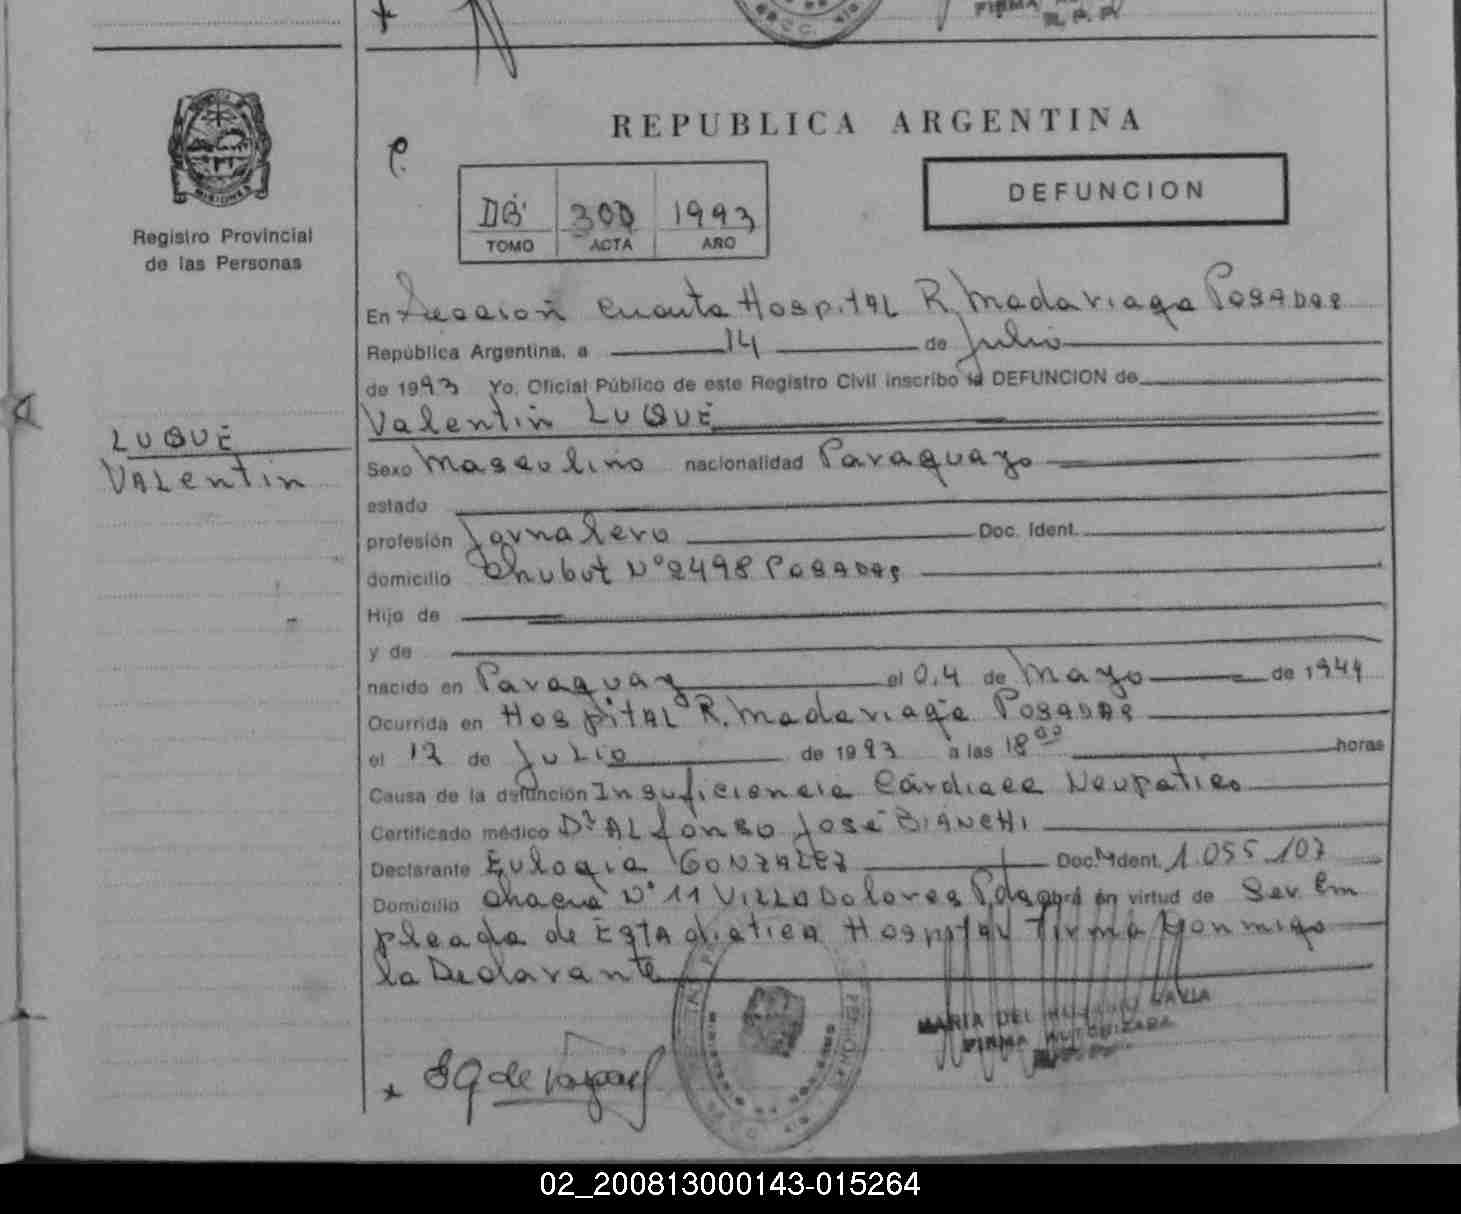 FIRMA
R. P. P.
REPUBLICA ARGENTINA
DEFUNCION
MISIONES
Registro Provincial
de las Personas
1993
TOMO ACTA AÑO
En Sección Cuarta Hospital R. Madariaga Posadas
República Argentina, a 14 de Julio
de 1993 Yo, Oficial Público de este Registro Civil inscribo la DEFUNCION de
Valentin LUQUE
LUQUE
VALentin
Sexo Masculino nacionalidad Paraguayo
estado
profesión Jornalero Doc. Ident.
domicilio Chubut Nº 2498 Posadas
Hijo de
y de
nacido en Paraguay el 04 de Mayo de 1944
Ocurrida en HospitAL R. Madariaga Posadas
el de Julio de 1993 a las 18 00 horas
Causa de la defunción Insuficiencia Cárdiaca
Certificado médico Dr ALfonso José BIANCHI
Declarante Eulogia GONZALEZ Doc. Ident. 1.055.107
Domicilio Chacra Nº 11 VILLA Dolores Pdas obra en virtud de Ser Em
pleada de ESTA Hospital Firma Conmigo
la Declarante
MARIA DEL
FIRMA AUTORIZADA
02_200813000143-015264